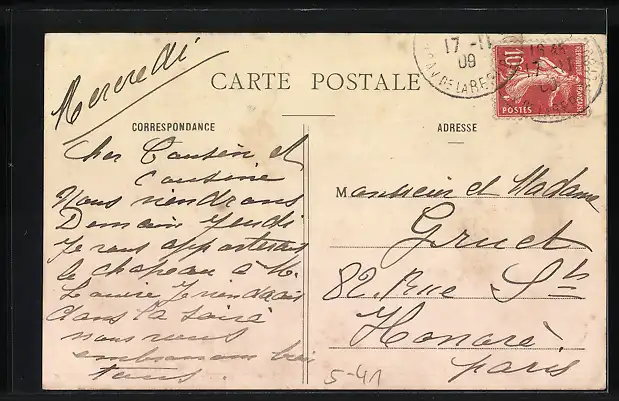 Mercredi
CARTE POSTALE
CORRESPONDANCE
ADRESSE
17 -11
09
10c
POSTES
Cher Cousin et
Cousine
Nous viendrons
Demain Jeudi
Je vous apporterai
le chapeau à M.
Je viendrai
dans la soiré
nous vous
embrassons bien
tous.
Monsieur et Madame
Gruet
82, Rue St
Honoré.
Paris
5-41